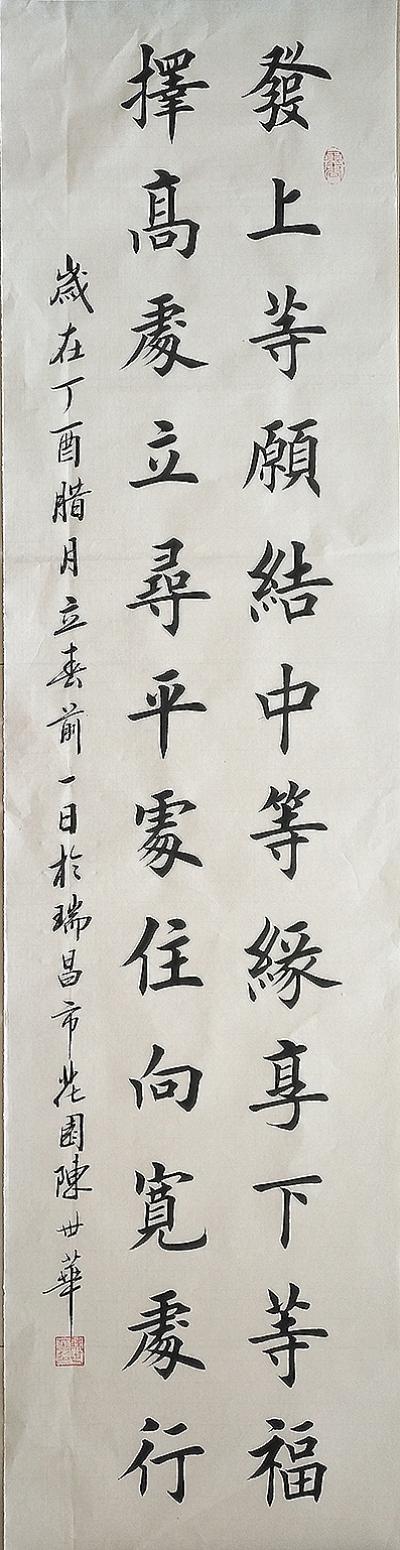 發上等願結中等緣享下等福
擇高處立尋平處住向寬處行
歲在丁酉腊月立春前一日於瑞昌市花园陳世華